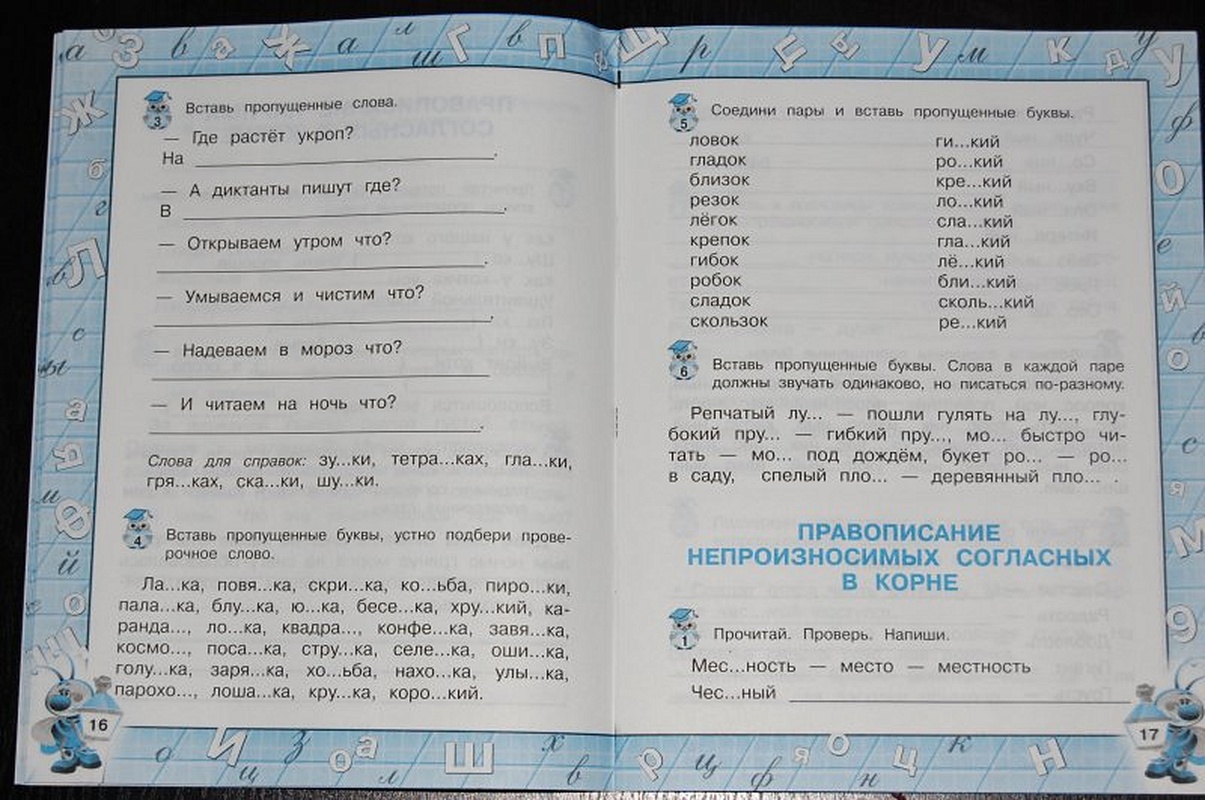 3 Вставь пропущенные слова.
— Где растёт укроп?
На ________.
— А диктанты пишут где?
В ________.
— Открываем утром что?
________.
— Умываемся и чистим что?
________.
— Надеваем в мороз что?
________
— И читаем на ночь что?
________.
Слова для справок: зу...ки, тетра...ках, гла...ки,
гря...ках, ска...ки, шу...ки.
4 Вставь пропущенные буквы, устно подбери прове-
рочное слово.
Ла...ка, повя...ка, скри...ка, ко...ьба, пиро...ки,
пала...ка, блу...ка, ю...ка, бесе...ка, хру...кий, ка-
ранда..., ло...ка, квадра..., конфе...ка, завя...ка,
космо..., поса...ка, стру...ка, селе...ка, оши...ка,
голу...ка, заря...ка, хо...ьба, нахо...ка, улы...ка,
парохо..., лоша...ка, кру...ка, коро...кий.
16
5 Соедини пары и вставь пропущенные буквы.
ловок ги...кий
гладок ро...кий
близок кре...кий
резок ло...кий
лёгок сла...кий
крепок гла...кий
гибок лё...кий
робок бли...кий
сладок сколь...кий
скользок ре...кий
6 Вставь пропущенные буквы. Слова в каждой паре
должны звучать одинаково, но писаться по-разному.
Репчатый лу... — пошли гулять на лу..., глу-
бокий пру... — гибкий пру..., мо... быстро чи-
тать — мо... под дождём, букет ро... — ро...
в саду, спелый пло... — деревянный пло... .
ПРАВОПИСАНИЕ
НЕПРОИЗНОСИМЫХ СОГЛАСНЫХ
В КОРНЕ
1 Прочитай. Проверь. Напиши.
Мес...ность — место — местность
Чес...ный ________
17